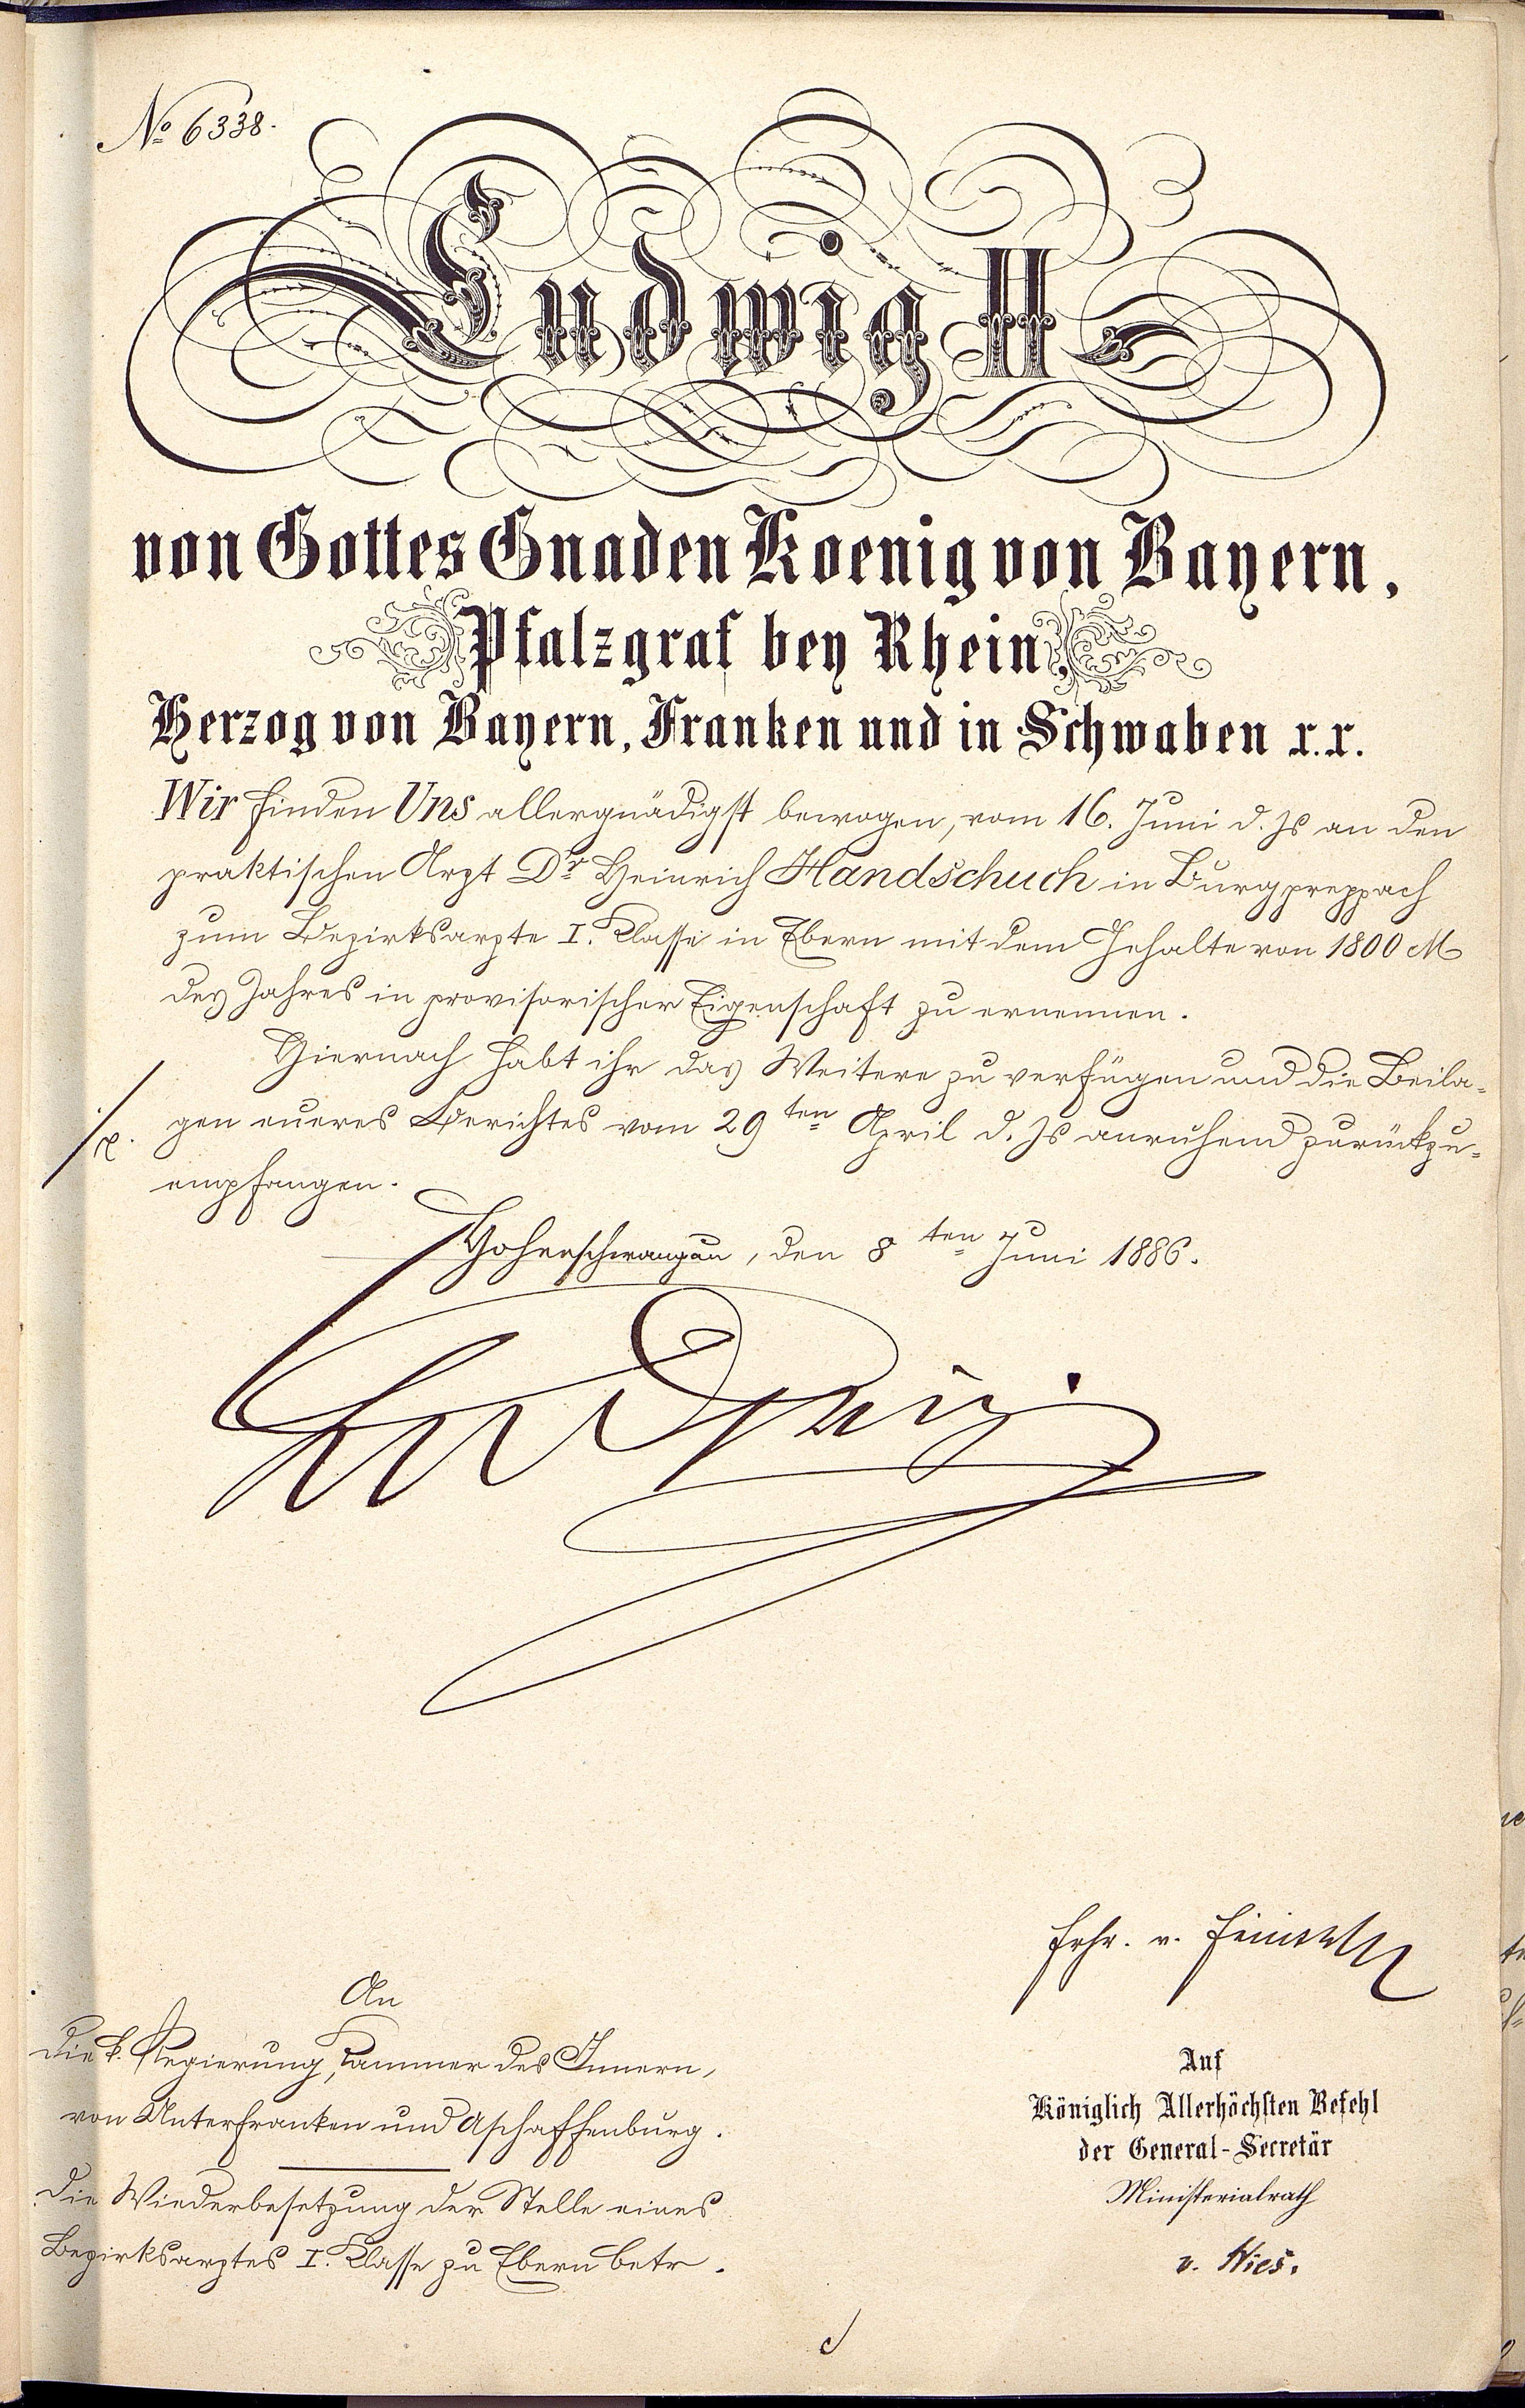 No 6338.
Ludwig II
von Gottes Gnaden Koenig von Bayern,
Pfalzgraf bey Rhein,
Herzog von Bayern, Franken und in Schwaben r.r.
Wir finden Uns allergnädigst bewogen, vom 16. Juni d. Js an den
praktischen Arzt Dr Heinrich Handschuch in Burgpreppach
zum Bezirksarzte I. Klasse in Ebern mit dem Gehalte von 1800 M
des Jahres in provisorischer Eigenschaft zu ernennen.
Hiernach habt ihr das Weitere zu verfügen und die Beila-
gen eueres Berichtes vom 29ten April d. Js anruhend zurückzu-
empfangen.
Hohenschwangau, den 8ten Juni 1886.
Ludwig
Frhr. v.
An
die k. Regierung, Kammer des Innern,
von Unterfranken und Aschaffenburg.
Die Wiederbesetzung der Stelle eines
Bezirksarztes I. Klasse zu Ebern betr.
Auf
Königlich Allerhöchsten Befehl
der General-Secretär
Ministerialrath
v. Nies.